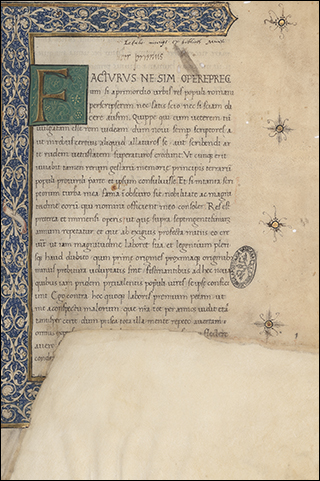 liber primus
FACTVRVS NE SIM OPEREPREG
um si a primordio urbis res populi romani
perscripserim nec satis scio nec si sciam di
cere ausim. Quippe qui cum veterem tu
vulgatam esse rem videam dum novi semp scriptores a
ut in rebus certius aliquid allaturos se aut scribendi ar
te rudem vetustatem superaturos credunt. Vt cumq erit
iuvabit tamen rerum gestarum memorie principis terrarū
populi pro virili parte et ipsum consuluisse. Et si in tanta scri
ptorum turba mea fama in obscuro sit nobilitate ac magni
tudine eorum qui nomini officient meo consoler. Res est
preterea et immensi operis ut que supra septingentesimum
annum repetatur et que ab exiguis profecta initiis eo cre
verit ut iam magnitudine laboret sua et legentium pleris
q haud dubito quin prime origines proximaq originibus
minus prebitura voluptatis sint festinantibus ad hec nova
quibus iam pridem prevalentis populi vires se ipse confici
unt. Ego contra hoc quoq laboris premium petam ut
me a conspectu malorum que nrā tot per annos vidit etas
tantisper certe dum prisca illa mente repeto avertam